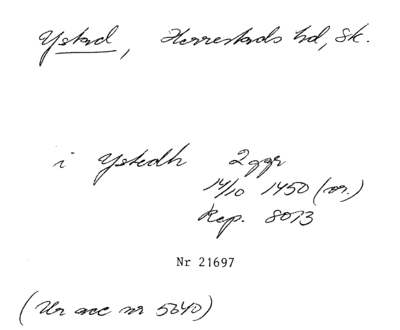 Ystad, Herrestads hd, Sk.
i Ystedh 2 ggr
14/10 1450 (or.)
Rep. 8073
Nr 21697
(Ur acc nr 5640)